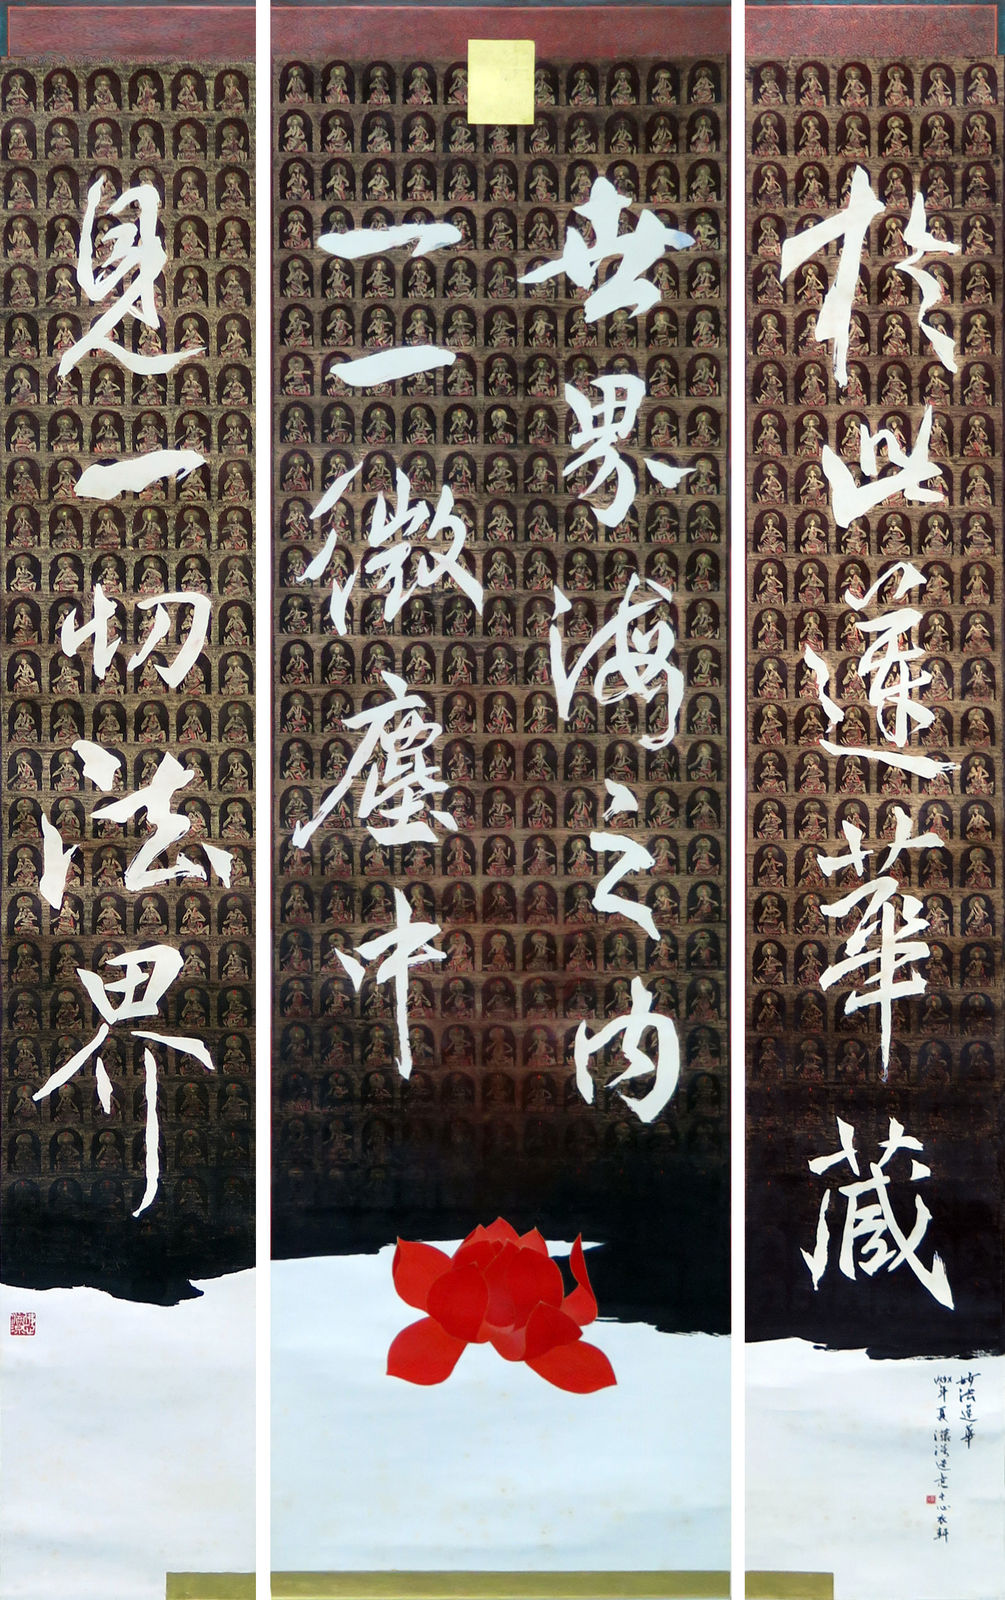 於此蓮華藏
世界海之內
一一微塵中
見一切法界
妙法蓮華